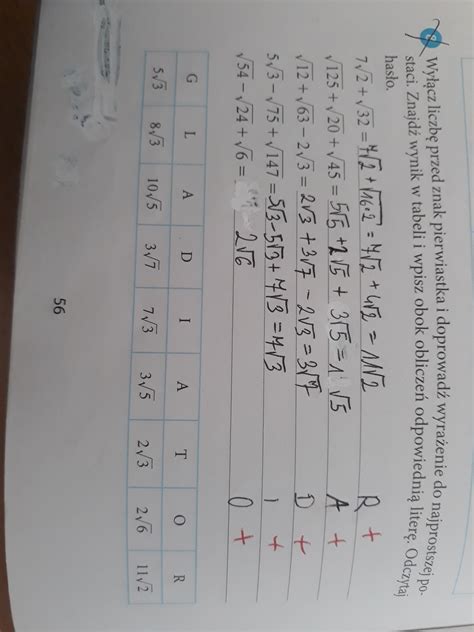 8 Wyłącz liczbę przed znak pierwiastka i doprowadź wyrażenie do najprostszej po-
staci. Znajdź wynik w tabeli i wpisz obok obliczeń odpowiednią literę. Odczytaj
hasło.
7√2 + √32 = 7√2 + √16·2 = 7√2 + 4√2 = 11√2 R +
√125 + √20 + √45 = 5√5 + 2√5 + 3√5 = 1 √5 A +
√12 + √63 − 2√3 = 2√3 + 3√7 − 2√3 = 3√7 D +
5√3 − √75 + √147 = 5√3 − 5√3 + 7√3 = 7√3 I +
√54 − √24 + √6 = 2√6 O +
G L A D I A T O R
5√3 8√3 10√5 3√7 7√3 3√5 2√3 2√6 11√2
56